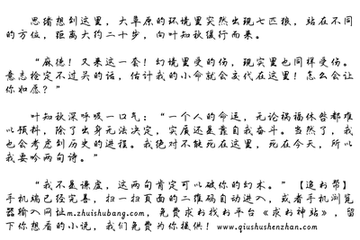 思绪想到这里，大草原的环境里突然出现七匹狼，站在不同
的方位，距离大约二十步，向叶知秋缓行而来。
“麻德！又来这一套！幻境里受的伤，现实里也同样受伤。
意志检定不过关的话，估计我的小命就会交代在这里！怎么会让
你如愿？”
叶知秋深呼吸一口气：“一个人的命运，无论祸福休咎都难
以预料，除了出身无法决定，实质还是靠自我奋斗。当然了，我
也会考虑到历史的进程。我绝对不能死在这里，死在今天，所以
我要吟两句诗。”
“我不是谦虚，这两句肯定可以破你的幻术。”【追书帮】
手机端已经完善，扫一扫页面的二维码自动进入，或者手机浏览
器输入网址m.zhuishubang.com，免费求书找书平台《求书神站》，留
下你想看的小说，我们免费为你提供！www.qiushushenzhan.com